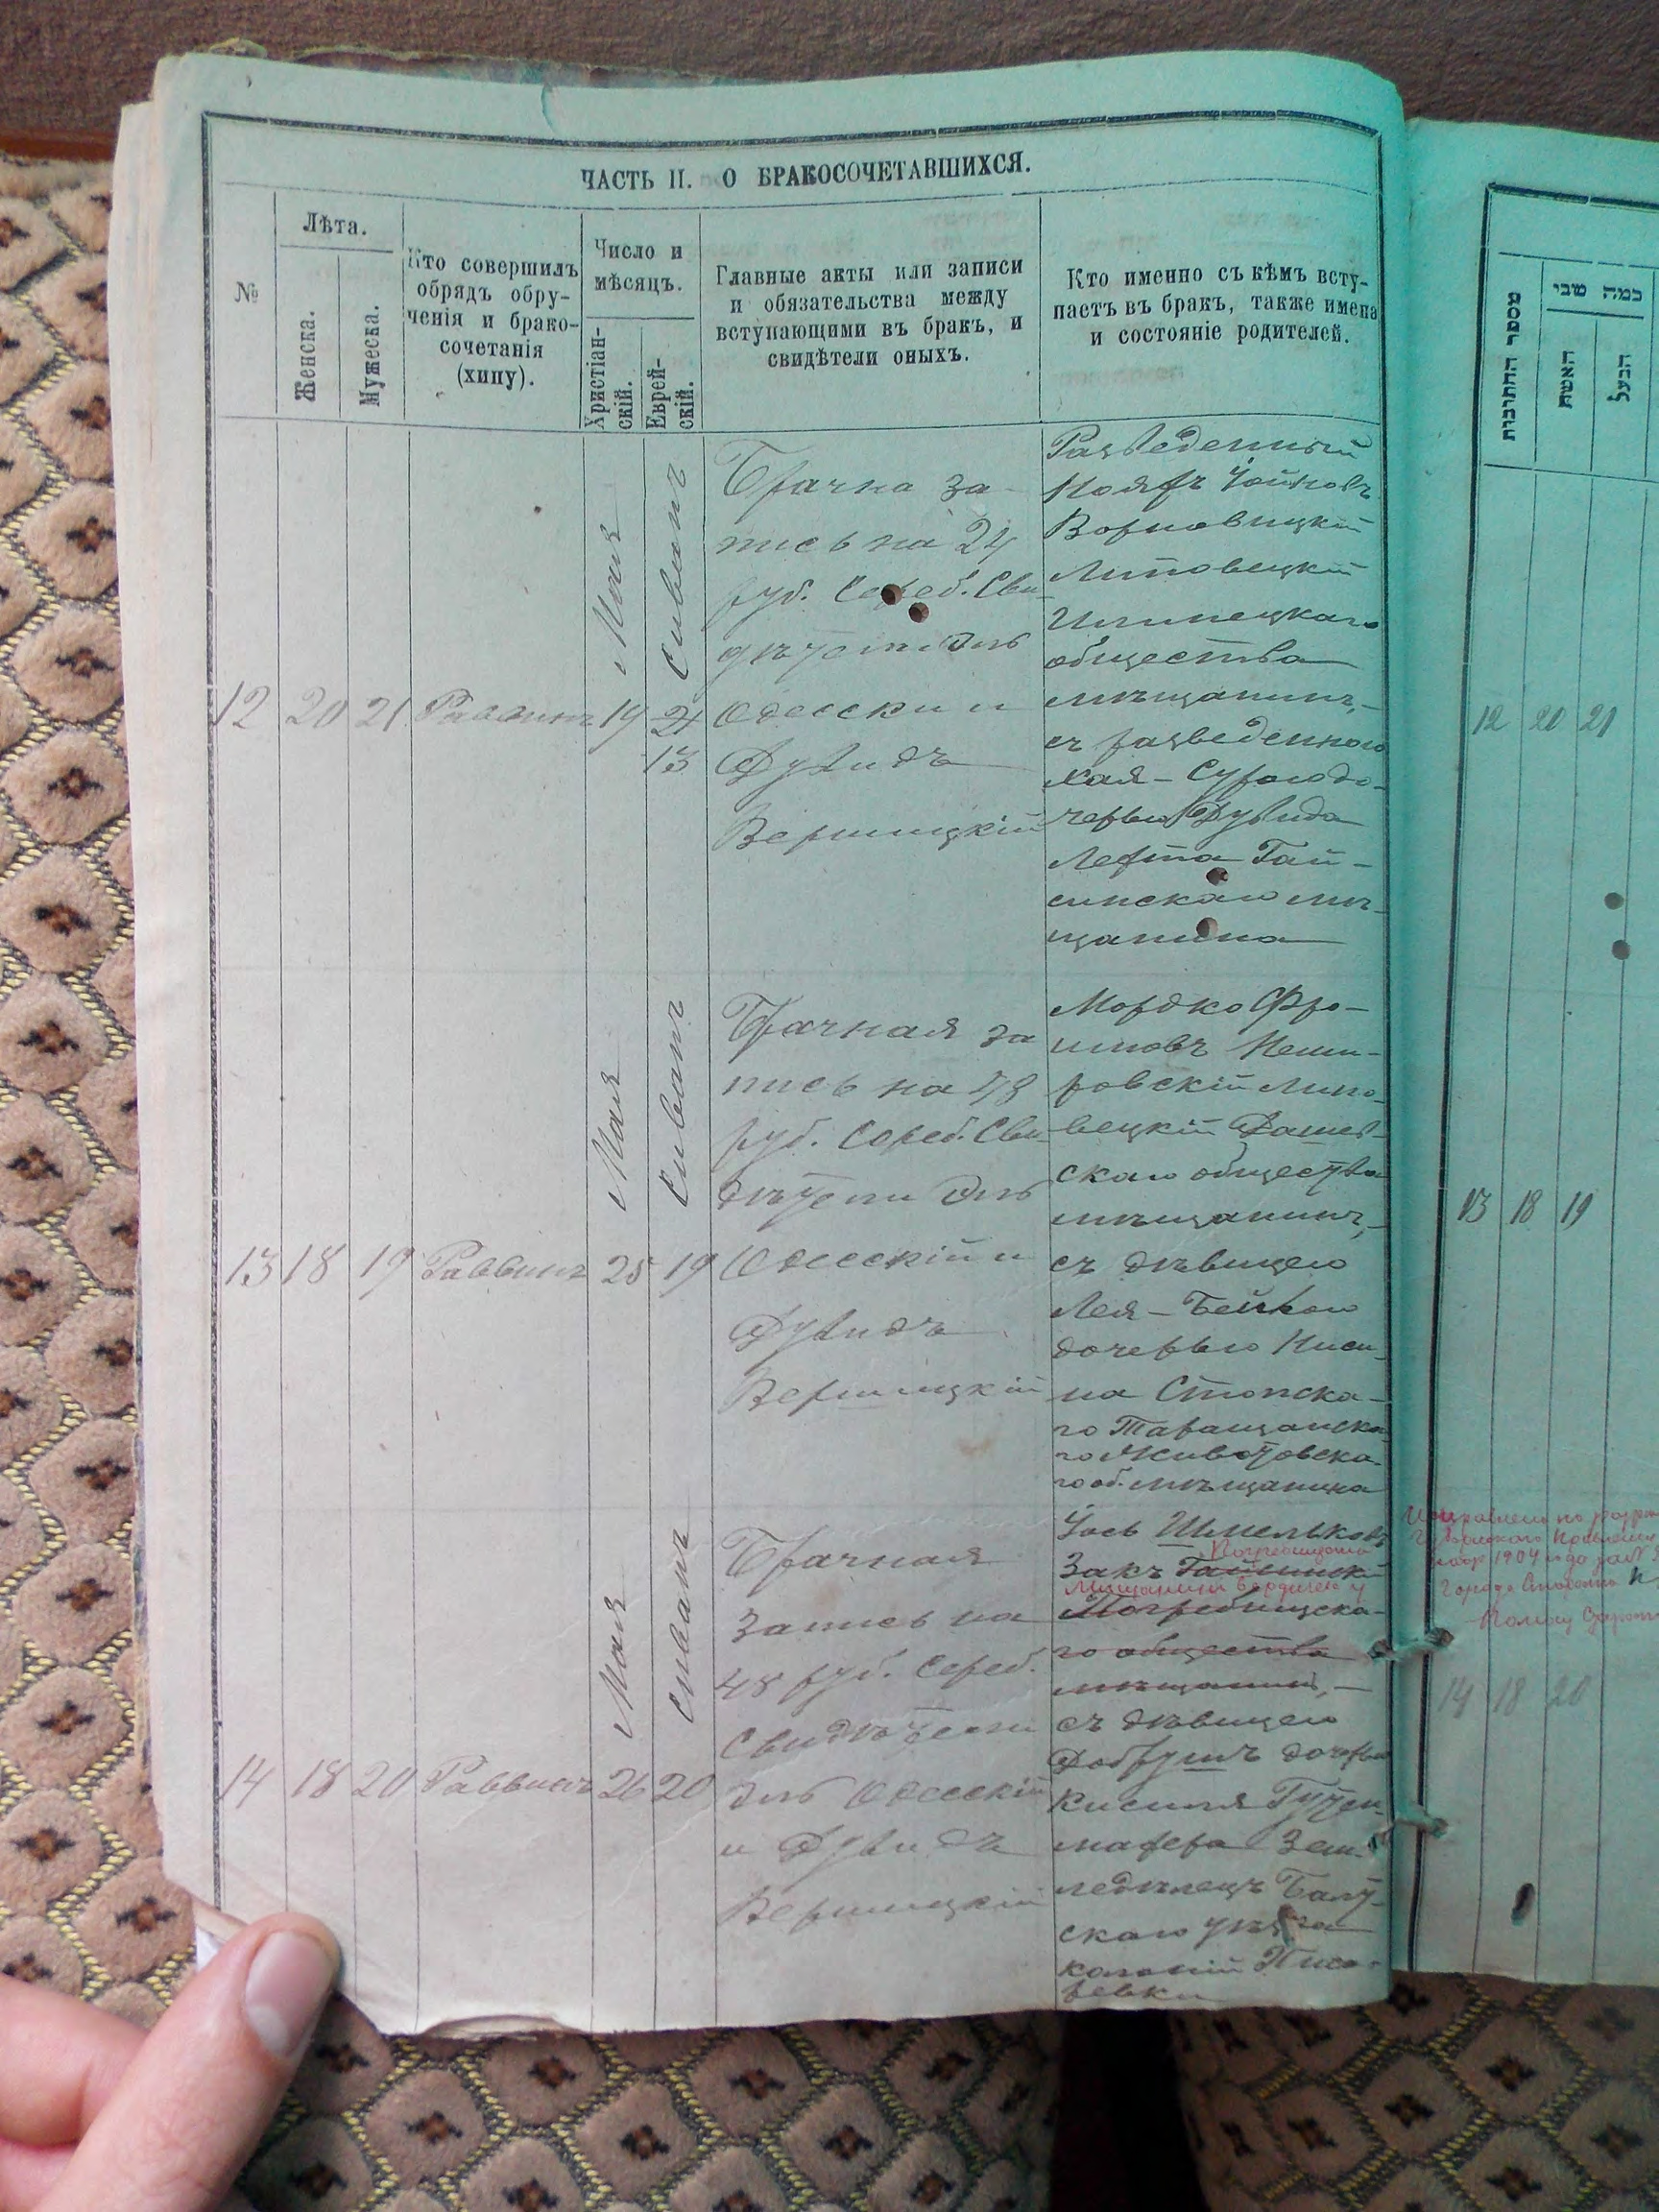 ЧАСТЬ II. О БРАКОСОЧЕТАВШИХСЯ.
№
Лѣта.
Женска.
Мужеска.
Кто совершилъ
обрядъ обру-
ченія и брако-
сочетанія
(хипу).
Число и
мѣсяцъ.
Христіан-
скій.
Еврей-
скій.
Главные акты или записи
и обязательства между
вступающими въ бракъ, и
свидѣтели оныхъ.
Кто именно съ кѣмъ всту-
паетъ въ бракъ, также имена
и состояніе родителей.
12
20
21
Раввинъ
Мая
19
Сиванъ
13
Брачна за-
пись на 24
руб. Сереб. Сви-
дѣтели Эль
Одесски и
Дувидъ
Вершицкій
Разведенный
Липовецкій
Илинецкаго
общества
мѣщанинъ,-
съ разведенною
Хая-Сурою до-
черью Дувида
Гай-
синскаго мѣ-
щанина
13
18
19
Раввинъ
Мая
25
Сиванъ
19
Брачная за
пись на 48
руб. Сереб. Сви-
дѣтели Эль
Одесскій и
Дувидъ
Вершицкій
Мордко Фро-
имовъ Неми-
ровскій Липо-
вецкій Дашев-
скаго общества
мѣщанинъ,-
съ дѣвицею
Лея-Бейлою
дочерью Ниси-
на Стопска-
го Таращанска-
го Животовска-
го об. мѣщанина
14
18
20
Раввинъ
Мая
26
Сиванъ
20
Брачная
Запись на
48 руб. Сереб.
Свидѣтели
Эль Одесскій
и Дувидъ
Вершицкій
Шмельковъ
Закъ
Погребищска-
го общества
мѣщанинъ,-
съ дѣвицею
Добрушъ дочерью
Кисиля Гутен-
махера Зем-
ледѣлецъ Балт-
скаго уѣзда
колоніи Писа-
ревки
מספר החתונות
כמה שני
האשה
הבעל
12 20 21
13 18 19
14 18 20